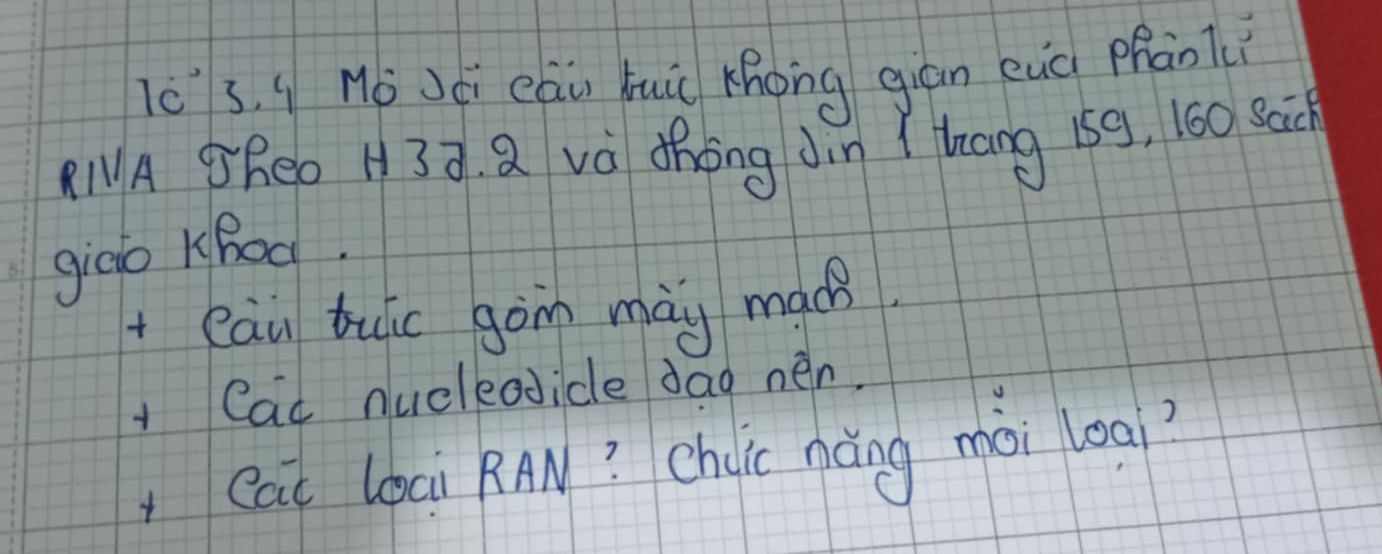 Tổ 3.4 Mô tả cấu trúc không gian của phân tử
RNA Theo H 37.2 và thông tin ở trang 159, 160 Sách
giáo khoa.
+ Cấu trúc gồm mấy mạch.
+ Các nucleotide tạo nên.
+ Các loại RAN? Chức năng mỗi loại?